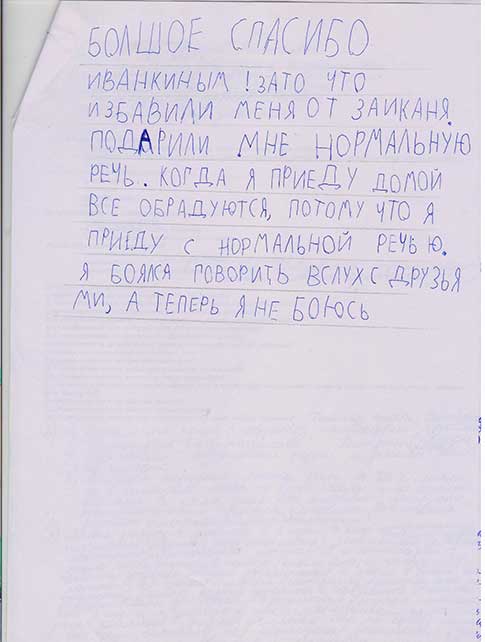 БОЛШОЕ СПАСИБО
ИВАНКИНЫМ! ЗАТО ЧТО
ИЗБАВИЛИ МЕНЯ ОТ ЗАИКАНЯ.
ПОДАРИЛИ МНЕ НОРМАЛЬНУЮ
РЕЧЬ. КОГДА Я ПРИЕДУ ДОМОЙ
ВСЕ ОБРАДУЮТСЯ, ПОТОМУ ЧТО Я
ПРИЕДУ С НОРМАЛЬНОЙ РЕЧЬЮ.
Я БОЯЛСА ГОВОРИТЬ ВСЛУХ С ДРУЗЬЯ
МИ, А ТЕПЕРЬ Я НЕ БОЮСЬ